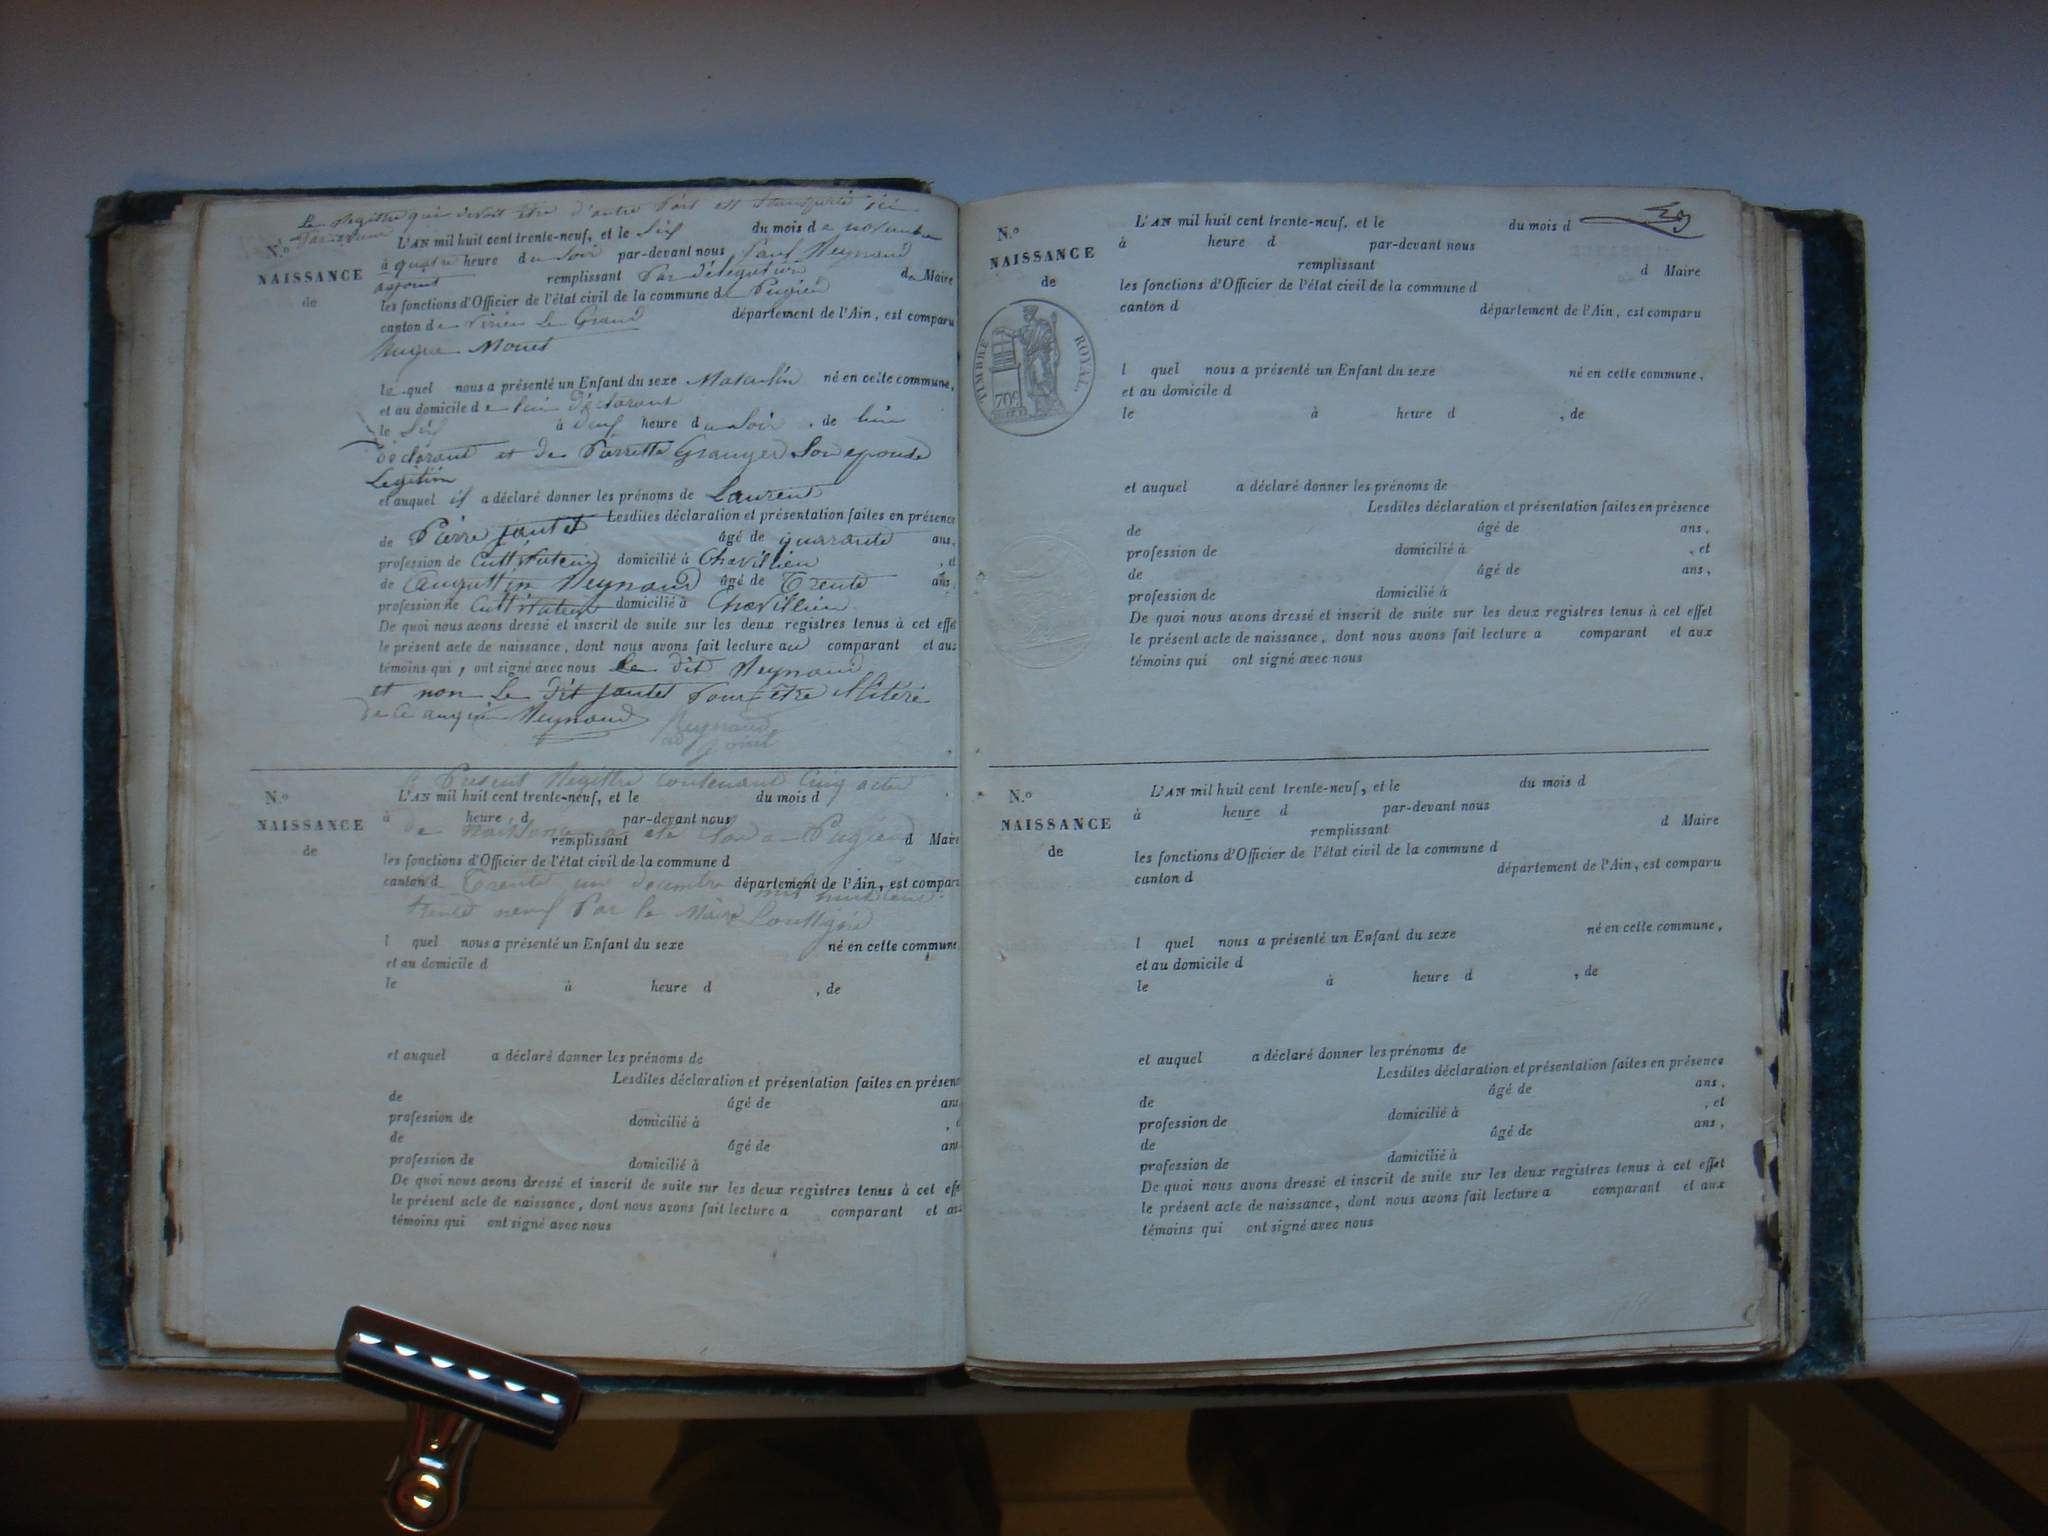 Le Registre qui devoit être d'autre Part est transporté ici
Par erreur
N.º L'AN mil huit cent trente-neuf, et le six du mois de novembre
NAISSANCE
de
à quatre heure du soir par-devant nous Paul Reynaud
adjoint remplissant Par délégation du Maire
les fonctions d'Officier de l'état civil de la commune de Pugieu
canton de Virieu Le Grand département de l'Ain, est comparu
Monet
lequel nous a présenté un Enfant du sexe Masculin né en cette commune,
et au domicile de lui déclarant
le six à heure du soir, de lui
déclarant et de Pierrette Granger Son epouse
Legitim
et auquel il a déclaré donner les prénoms de Laurent
Lesdites déclaration et présentation faites en présence
de Pierre jantet âgé de quarante ans,
profession de Cultivateur domicilié à Chevillieu, et
de Augustin Reynaud âgé de Trente ans,
profession de Cultivateur domicilié à Chevillieu
De quoi nous avons dressé et inscrit de suite sur les deux registres tenus à cet effet
le présent acte de naissance, dont nous avons fait lecture au comparant et aux
témoins qui, ont signé avec nous Le dit Reynaud
et non Le dit jantet Pour être illitéré
de ce Reynaud
Reynaud
adjoint
Le Présent Registre Contenant Cinq actes
N.º L'AN mil huit cent trente-neuf, et le du mois d
NAISSANCE
de
à heure d par-devant nous
de Naissance a été Clos a Pugieu
remplissant d Maire
les fonctions d'Officier de l'état civil de la commune d
canton d département de l'Ain, est comparu
Le Trente un decembre mil huit cent
trente neuf Par le Maire Soussigné
l quel nous a présenté un Enfant du sexe né en cette commune,
et au domicile d
le à heure d , de
et auquel a déclaré donner les prénoms de
Lesdites déclaration et présentation faites en présen
de âgé de ans
profession de domicilié à ,
de âgé de ans
profession de domicilié à
De quoi nous avons dressé et inscrit de suite sur les deux registres tenus à cet effe
le présent acte de naissance, dont nous avons fait lecture a comparant et au
témoins qui ont signé avec nous
N.º L'AN mil huit cent trente-neuf, et le du mois d
NAISSANCE
de
à heure d par-devant nous
remplissant d Maire
les fonctions d'Officier de l'état civil de la commune d
canton d département de l'Ain, est comparu
TIMBRE ROYAL.
70c
l quel nous a présenté un Enfant du sexe né en cette commune,
et au domicile d
le à heure d , de
et auquel a déclaré donner les prénoms de
Lesdites déclaration et présentation faites en présence
de âgé de ans,
profession de domicilié à , et
de âgé de ans,
profession de domicilié à
De quoi nous avons dressé et inscrit de suite sur les deux registres tenus à cet effet
le présent acte de naissance, dont nous avons fait lecture a comparant et aux
témoins qui ont signé avec nous
N.º L'AN mil huit cent trente-neuf, et le du mois d
NAISSANCE
de
à heure d par-devant nous
remplissant d Maire
les fonctions d'Officier de l'état civil de la commune d
canton d département de l'Ain, est comparu
l quel nous a présenté un Enfant du sexe né en cette commune,
et au domicile d
le à heure d , de
et auquel a déclaré donner les prénoms de
Lesdites déclaration et présentation faites en présence
de âgé de ans,
profession de domicilié à , et
de âgé de ans,
profession de domicilié à
De quoi nous avons dressé et inscrit de suite sur les deux registres tenus à cet effet
le présent acte de naissance, dont nous avons fait lecture a comparant et aux
témoins qui ont signé avec nous